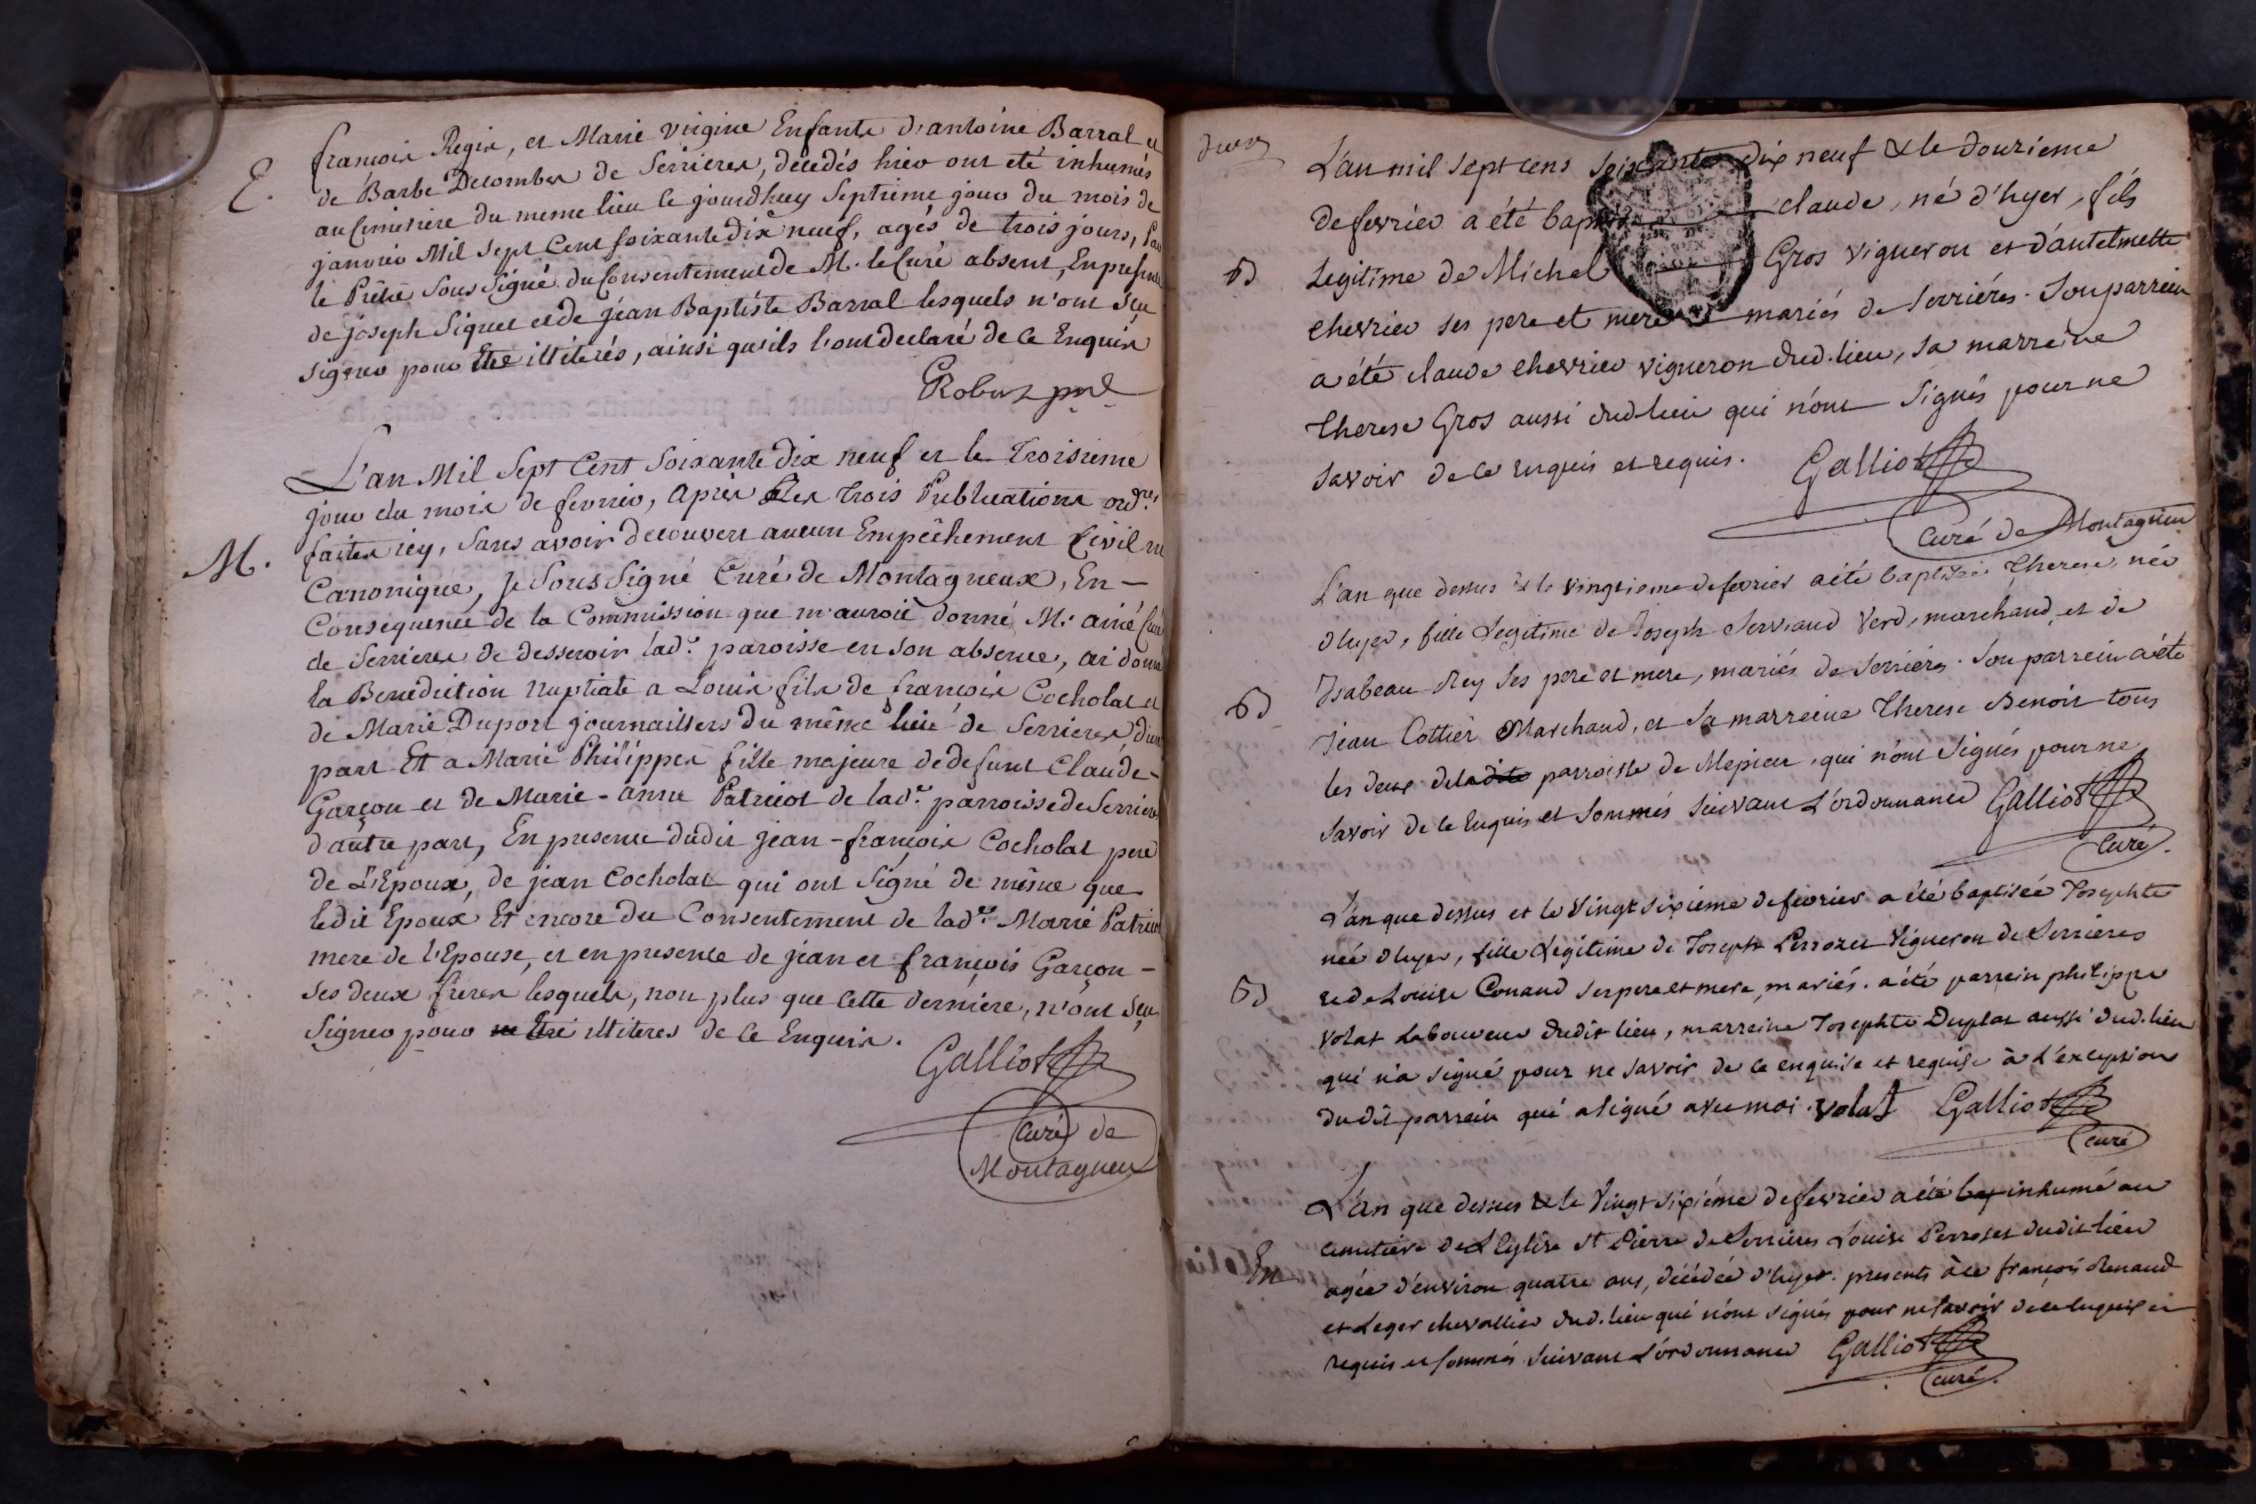 E.
françois Regis, et Marie virgine Enfants d'antoine Barral et
de Barbe Decombes de Serrieres, décedés hier ont eté inhumés
au Cimetiere du meme lieu le jourdhuy Septieme jour du mois de
janvier Mil Sept Cent Soixante dix neuf, agés de trois jours, par
le Prêtre Sous Signé du Consentement de M. le Curé absent, En presence
de joseph Siguet et de jéan Baptiste Barral lesquels n'ont Seu
Signer pour Etre illiterés, ainsi qu'ils l'ont declaré de ce Enquis
L'an Mil Sept Cent Soixante dix neuf et le troisieme
jour du mois de fevrier, après les trois Publications ord.res
M.
faites icy, Sans avoir decouvert aucun Empêchement Civil ni
Canonique, je Sous Signé Curé de Montagneux, En -
Consequence de la Commission que m'auroit donné M. ainé Curé
de Serrieres de desservir lad.e paroisse en Son absence, ai donné
la Benediction nuptiale a Louis fils de françois Cocholat et
de Marie Duport journailliers du même lieu de Serrieres d'une
part Et a Marie Philippes fille majeure de defunt Claude -
Garçon et de Marie-anne Patricot de lad.e parroisse de Serrieres
d'autre part, En presence dudit jean-françois Cocholat pere
de L'Epoux, de jean Cocholat qui ont Signé de même que
ledit Epoux Et encore du Consentement de lad.e Marie Patricot
mere de l'Epouse, et en presence de jean et françois Garçon -
Ses deux freres lesquels, non plus que cette derniere, n'ont Seu
Signer pour ne Etre illiteres de ce Enquis.
Galliot
Curé de
Montagneu
L'an mil sept cens soixante dix neuf & le douzieme
de fevrier a été baptisé claude, né d'hyer, fils
Bd
Legitime de Michel Gros vigneron et d'antelmette
chevrier ses pere et mere mariés de Serriéres. Son parrein
a été claude chevrier vigneron dud. lieu, sa marreine
therese Gros aussi dud lieu qui n'ont Signés pour ne
savoir de ce enquis et requis. Galliot
Curé de Montagnieu
L'an que dessus & le vingtieme de fevrier a été baptisée Therese, née
d'hyer, fille Legitime de Joseph Serviaud Verd, marchand, et de
Bd
Isabeau Rey ses pere et mere, mariés de Serriéres. Son parrein a été
Jean Cottier Marchand, et Sa marreine Therese Benoit tous
les deux de ladite parroisse de Mepieu, qui n'ont Signés pour ne
savoir de ce Enquis et Sommés Suivant L'ordonnance Galliot
Curé.
L'an que dessus et le Vingt Sixième de fevrier a été baptisée Josephte
née d'hyer, fille Legitime de Joseph Perrozet Vigneron de Serrieres
Bd
et de Louise Conaud ses pere et mere, mariés. a été parrein philippe
Volat Laboureur dudit lieu, marreine Josephte Duplat aussi dud. lieu
qui n'a signé pour ne savoir de ce enquise et requise à L'exception
dudit parrein qui a signé avec moi. volat Galliot
Curé
L'an que dessus & le Vingt Sixiéme de fevrier a été bap inhumé au
cimetiere de L'Eglise St Pierre de Serrieres Louise Perroset dudit lieu
En
agée d'environ quatre ans, décédée d'hyer. presents à ce françois Renaud
et Leger chevallier dud. lieu qui n'ont signés pour ne savoir de ce Enquis et
requis et sommés Suivant L'ordonnance Galliot
Curé.